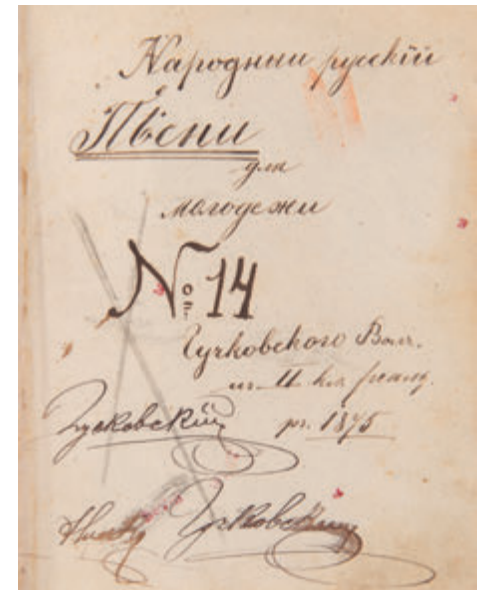 Народныи русскiи
Пѣсни
для
молодежи
№ 14
Гучковского Вал.
из II кл. реалэ.
1875
Гучковскiй
Гучковскiй